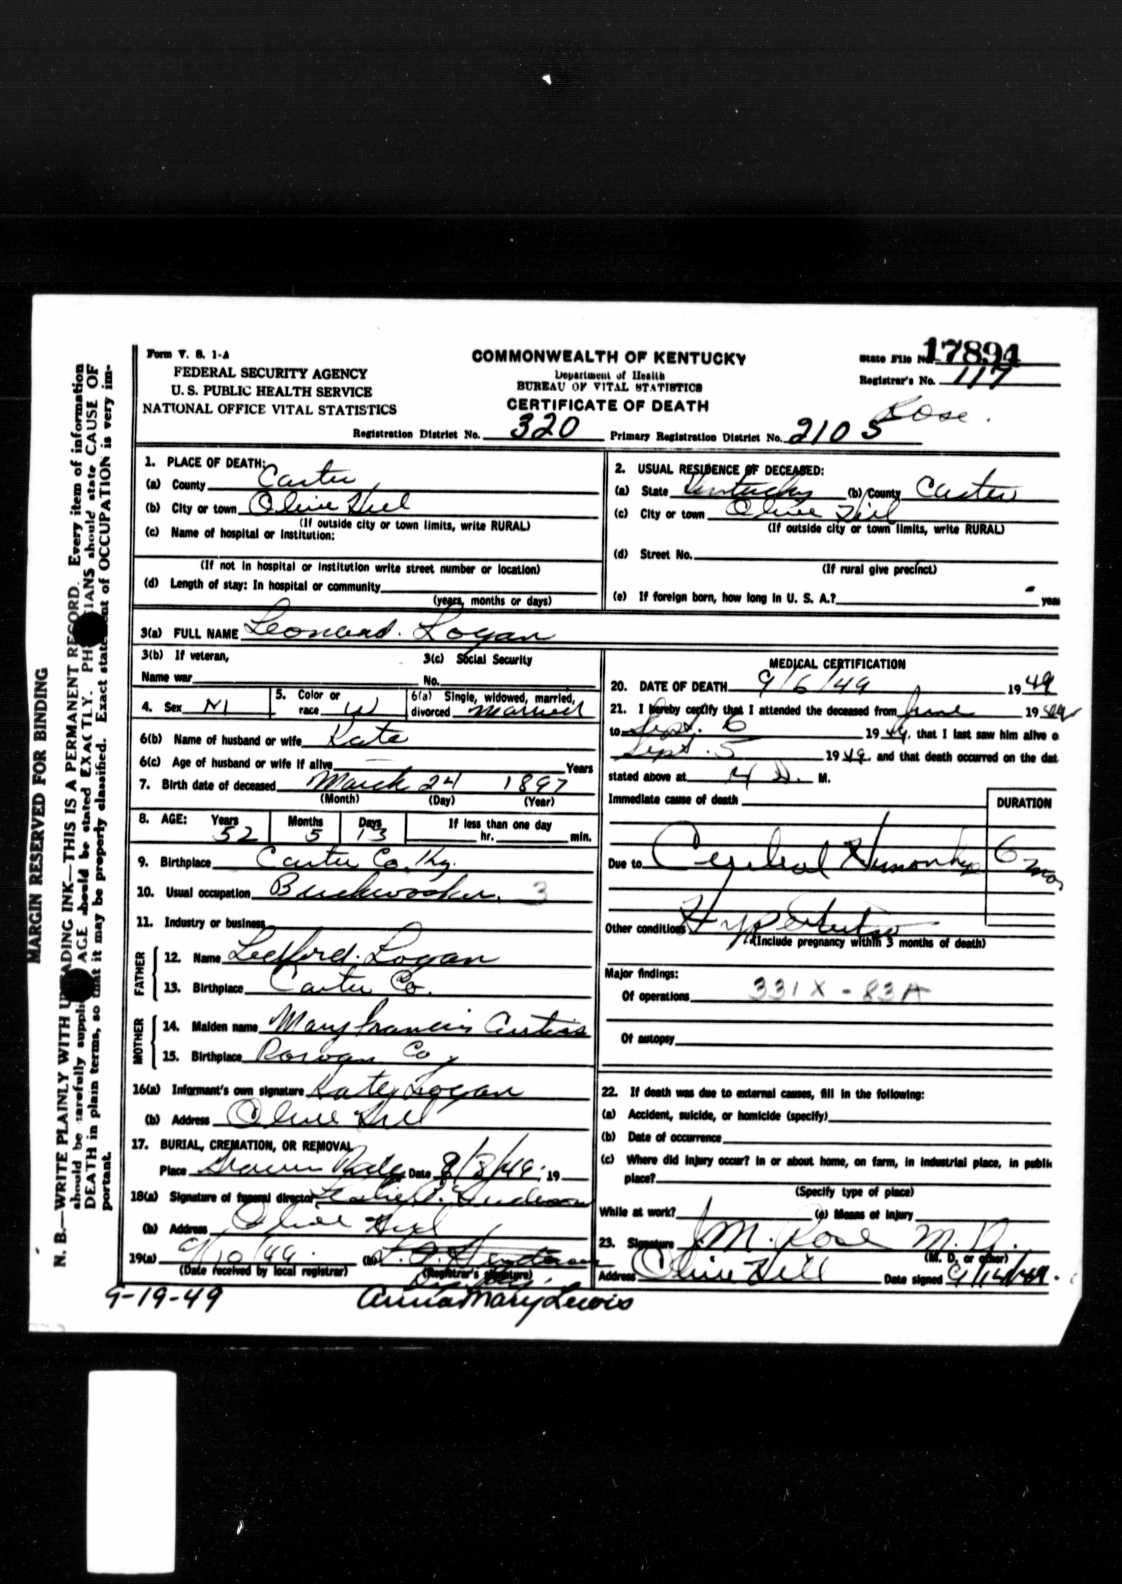 Form V. S. 1-A
FEDERAL SECURITY AGENCY
U. S. PUBLIC HEALTH SERVICE
NATIONAL OFFICE VITAL STATISTICS
COMMONWEALTH OF KENTUCKY
Department of Health
BUREAU OF VITAL STATISTICS
CERTIFICATE OF DEATH
State File No. 17894
Registrar's No. 117
Rose.
Registration District No. 320 Primary Registration District No. 2105
1. PLACE OF DEATH:
(a) County Carter
(b) City or town Olive Hill
(If outside city or town limits, write RURAL)
(c) Name of hospital or institution:
(If not in hospital or institution write street number or location)
(d) Length of stay: In hospital or community
(years, months or days)
2. USUAL RESIDENCE OF DECEASED:
(a) State Kentucky (b) County Carter
(c) City or town Olive Hill
(If outside city or town limits, write RURAL)
(d) Street No.
(If rural give precinct)
(e) If foreign born, how long in U. S. A.? years
3(a) FULL NAME Leonard. Logan
3(b) If veteran,
Name war
3(c) Social Security
No.
4. Sex M
5. Color or race W
6(a) Single, widowed, married, divorced married
6(b) Name of husband or wife Kate
6(c) Age of husband or wife if alive Years
7. Birth date of deceased March 24 1897
(Month) (Day) (Year)
8. AGE: Years 52 Months 5 Days 13 If less than one day
hr. min.
9. Birthplace Carter Co. Ky.
10. Usual occupation Brickworker. 3
11. Industry or business
FATHER
12. Name Ledford. Logan
13. Birthplace Carter Co.
MOTHER
14. Maiden name Mary Francis
15. Birthplace Rowan Co
16(a) Informant's own signature Kate Logan
(b) Address Olive Hill
17. BURIAL, CREMATION, OR REMOVAL
Place Date 9/8/49. 19
18(a) Signature of funeral director
(b) Address Olive Hill
19(a) 9/10/49. (b)
(Date received by local registrar) (Registrar's signature)
9-19-49 Anna Mary Lewis
MEDICAL CERTIFICATION
20. DATE OF DEATH 9/6/49 1949
21. I hereby certify that I attended the deceased from June 1949
to Sept. 6 1949. that I last saw him alive o
Sept. 5 1949. and that death occurred on the dat
stated above at M.
Immediate cause of death
DURATION
Due to Cerebral Hemorrhage 6 mos
Other conditions Hypertension
(Include pregnancy within 3 months of death)
Major findings:
Of operations 331X - 83A
Of autopsy
22. If death was due to external causes, fill in the following:
(a) Accident, suicide, or homicide (specify)
(b) Date of occurrence
(c) Where did injury occur? In or about home, on farm, in industrial place, in public
place?
(Specify type of place)
While at work? (e) Means of injury
23. Signature J. M. Rose M. D.
(M. D. or other)
Address Olive Hill Date signed 9/14/49.
MARGIN RESERVED FOR BINDING
N. B.—WRITE PLAINLY WITH UNFADING INK—THIS IS A PERMANENT RECORD. Every item of information
should be carefully supplied. AGE should be stated EXACTLY. PHYSICIANS should state CAUSE OF
DEATH in plain terms, so that it may be properly classified. Exact statement of OCCUPATION is very im-
portant.